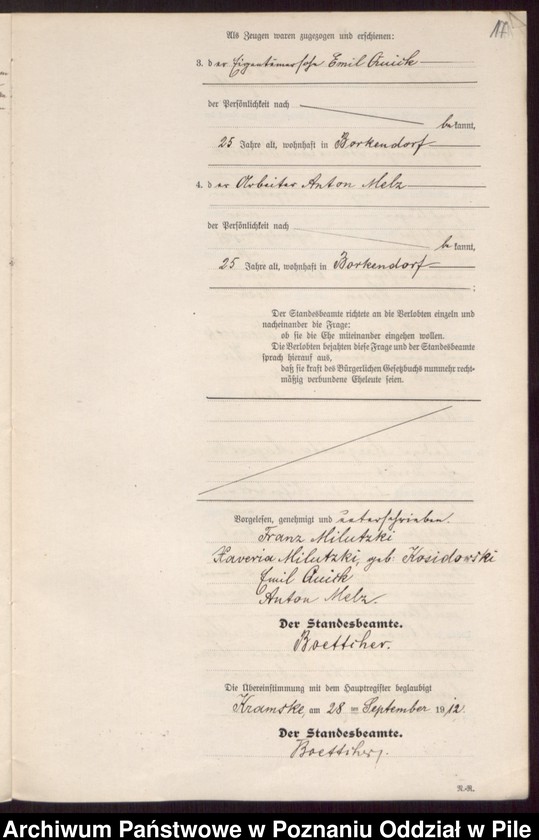 Als Zeugen waren zugezogen und erschienen:
3. der Eigentümersohn Emil Quick
der Persönlichkeit nach
bekannt,
25 Jahre alt, wohnhaft in Borkendorf
4. der Arbeiter Anton Melz
der Persönlichkeit nach
bekannt,
25 Jahre alt, wohnhaft in Borkendorf
;
Der Standesbeamte richtete an die Verlobten einzeln und
nacheinander die Frage:
ob sie die Ehe miteinander eingehen wollen.
Die Verlobten bejahten diese Frage und der Standesbeamte
sprach hierauf aus,
daß sie kraft des Bürgerlichen Gesetzbuchs nunmehr recht-
mäßig verbundene Eheleute seien.
Vorgelesen, genehmigt und unterschrieben.
Franz Milutzki
Xaveria Milutzki, geb Kosidorski
Emil Quick
Anton Melz.
Der Standesbeamte.
Boettcher.
Die Übereinstimmung mit dem Hauptregister beglaubigt
Kramske, am 28 ten September 1912.
Der Standesbeamte.
Boettcher.
R.-R.
Archiwum Państwowe w Poznaniu Oddział w Pile